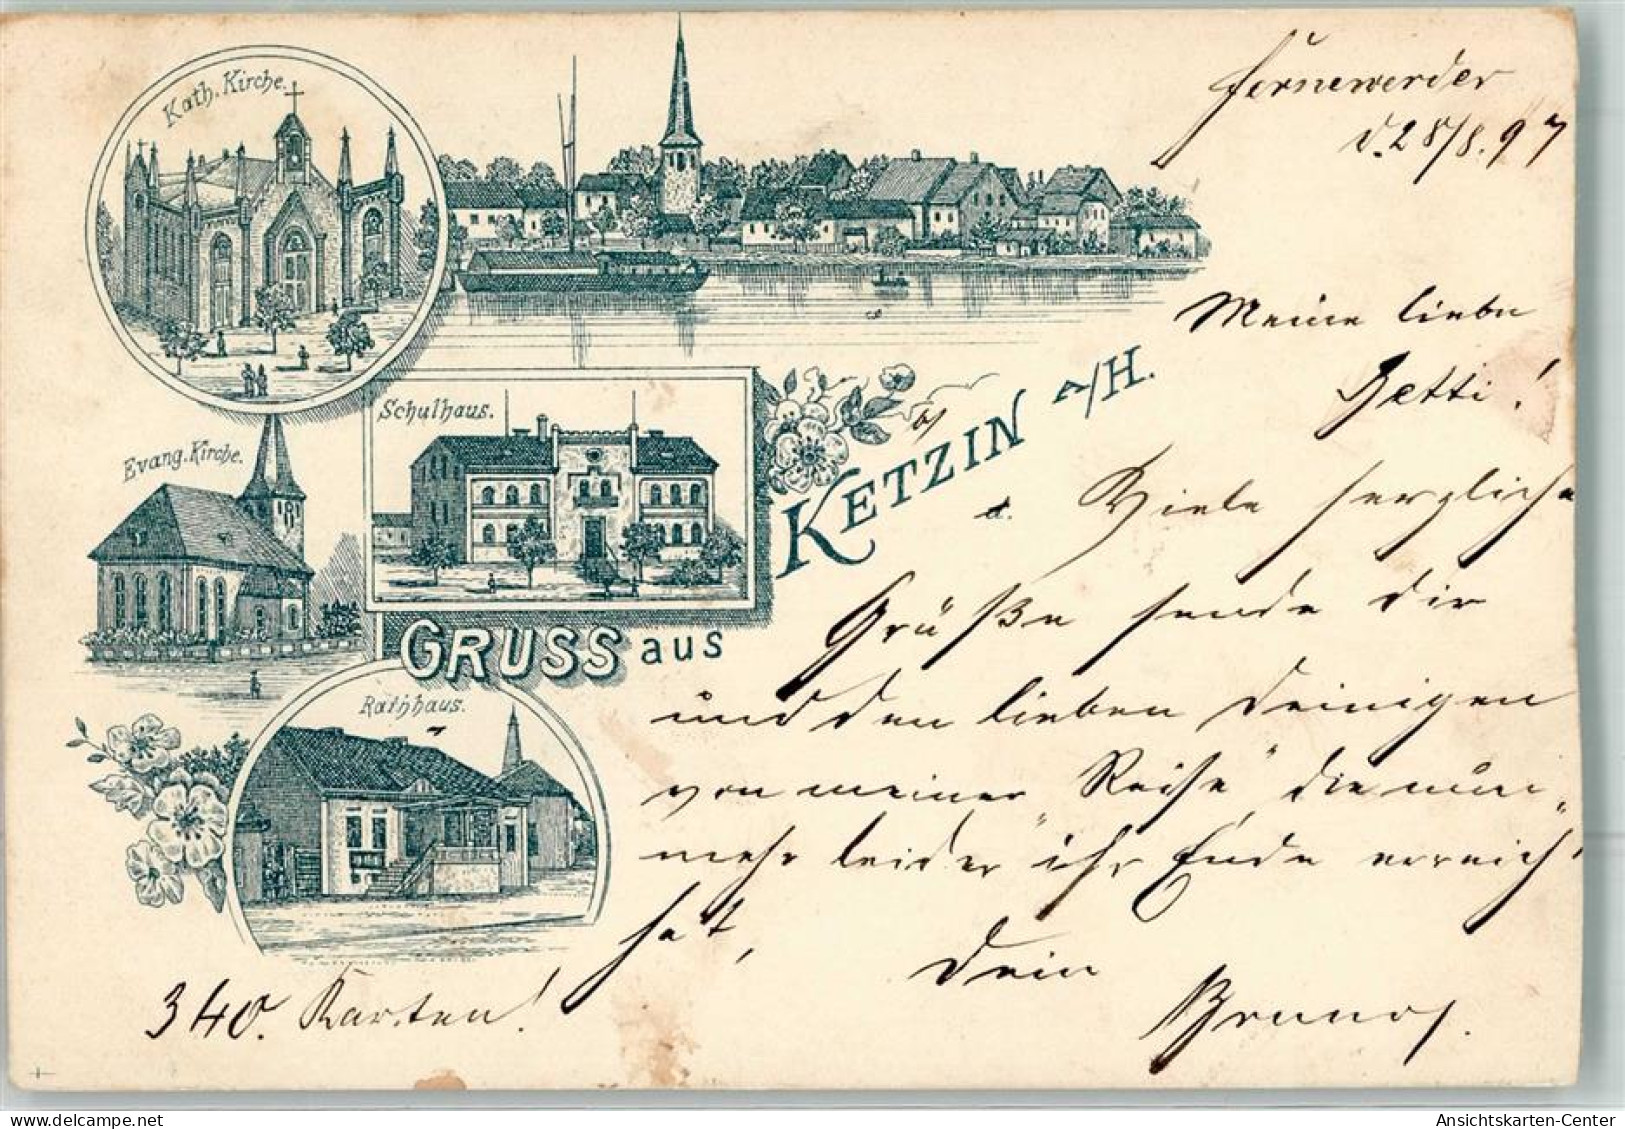 Kath. Kirche.
Fernewerder
d. 28/8. 97
Meine liebe
Hetti!
Schulhaus.
Evang. Kirche.
KETZIN a/H.
Viele herzliche
Grüße sende dir
GRUSS aus
und den lieben Deinigen
Rathhaus.
von meiner "Reise" die nun-
mehr leider ihr Ende erreich
hat,
Dein
340. Karten!
Ansichtskarten-Center